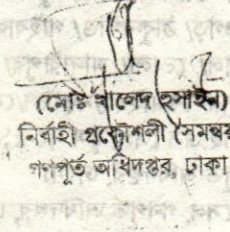 (মোঃ খালেদ হুসাইন)
নির্বাহী প্রকৌশলী (সমন্বয়
গণপূর্ত অধিদপ্তর, ঢাকা